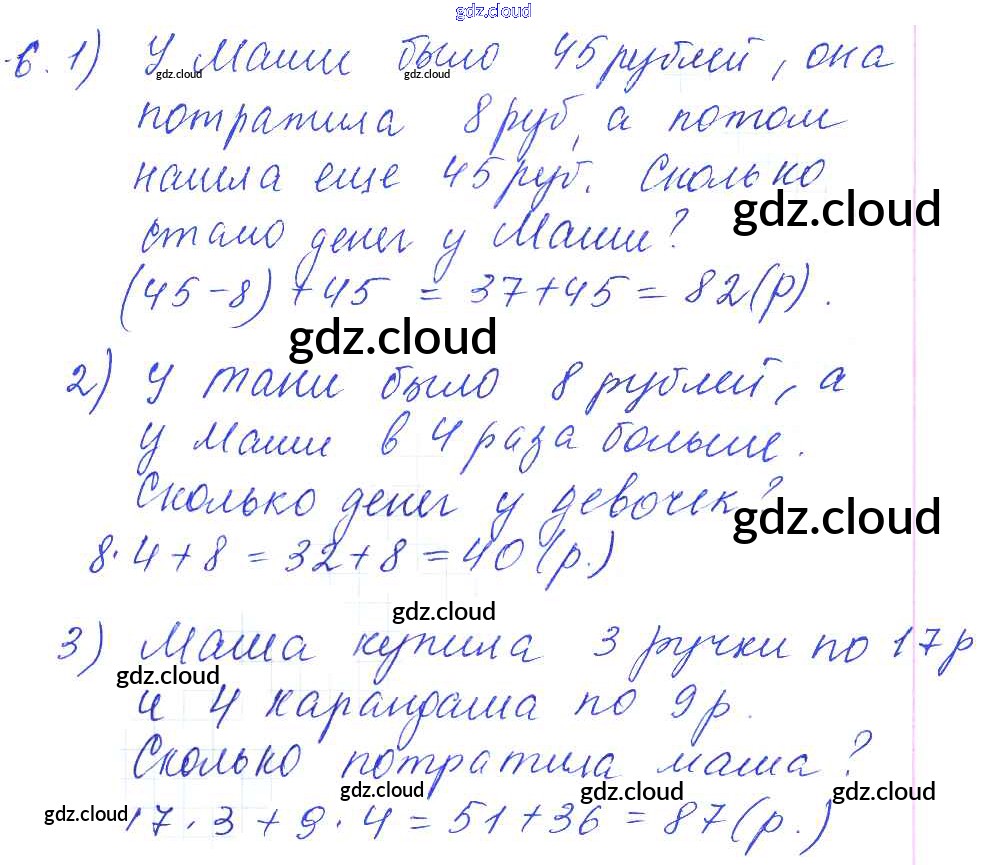 gdz.cloud
6. 1) У Маши было 45 рублей, она
gdz.cloud gdz.cloud
потратила 8 руб, а потом
нашла еще 45 руб. Сколько
gdz.cloud
стало денег у Маши?
(45-8)+45 = 37+45 = 82(р).
gdz.cloud
2) У Тани было 8 рублей, а
у Маши в 4 раза больше.
Сколько денег у девочек?
gdz.cloud
8·4+8 = 32+8 = 40 (р.)
gdz.cloud
3) Маша купила 3 ручки по 17р
gdz.cloud
и 4 карандаша по 9р.
Сколько потратила маша?
gdz.cloud gdz.cloud gdz.cloud
gdz.cloud
17·3+9·4 = 51+36 = 87(р.)